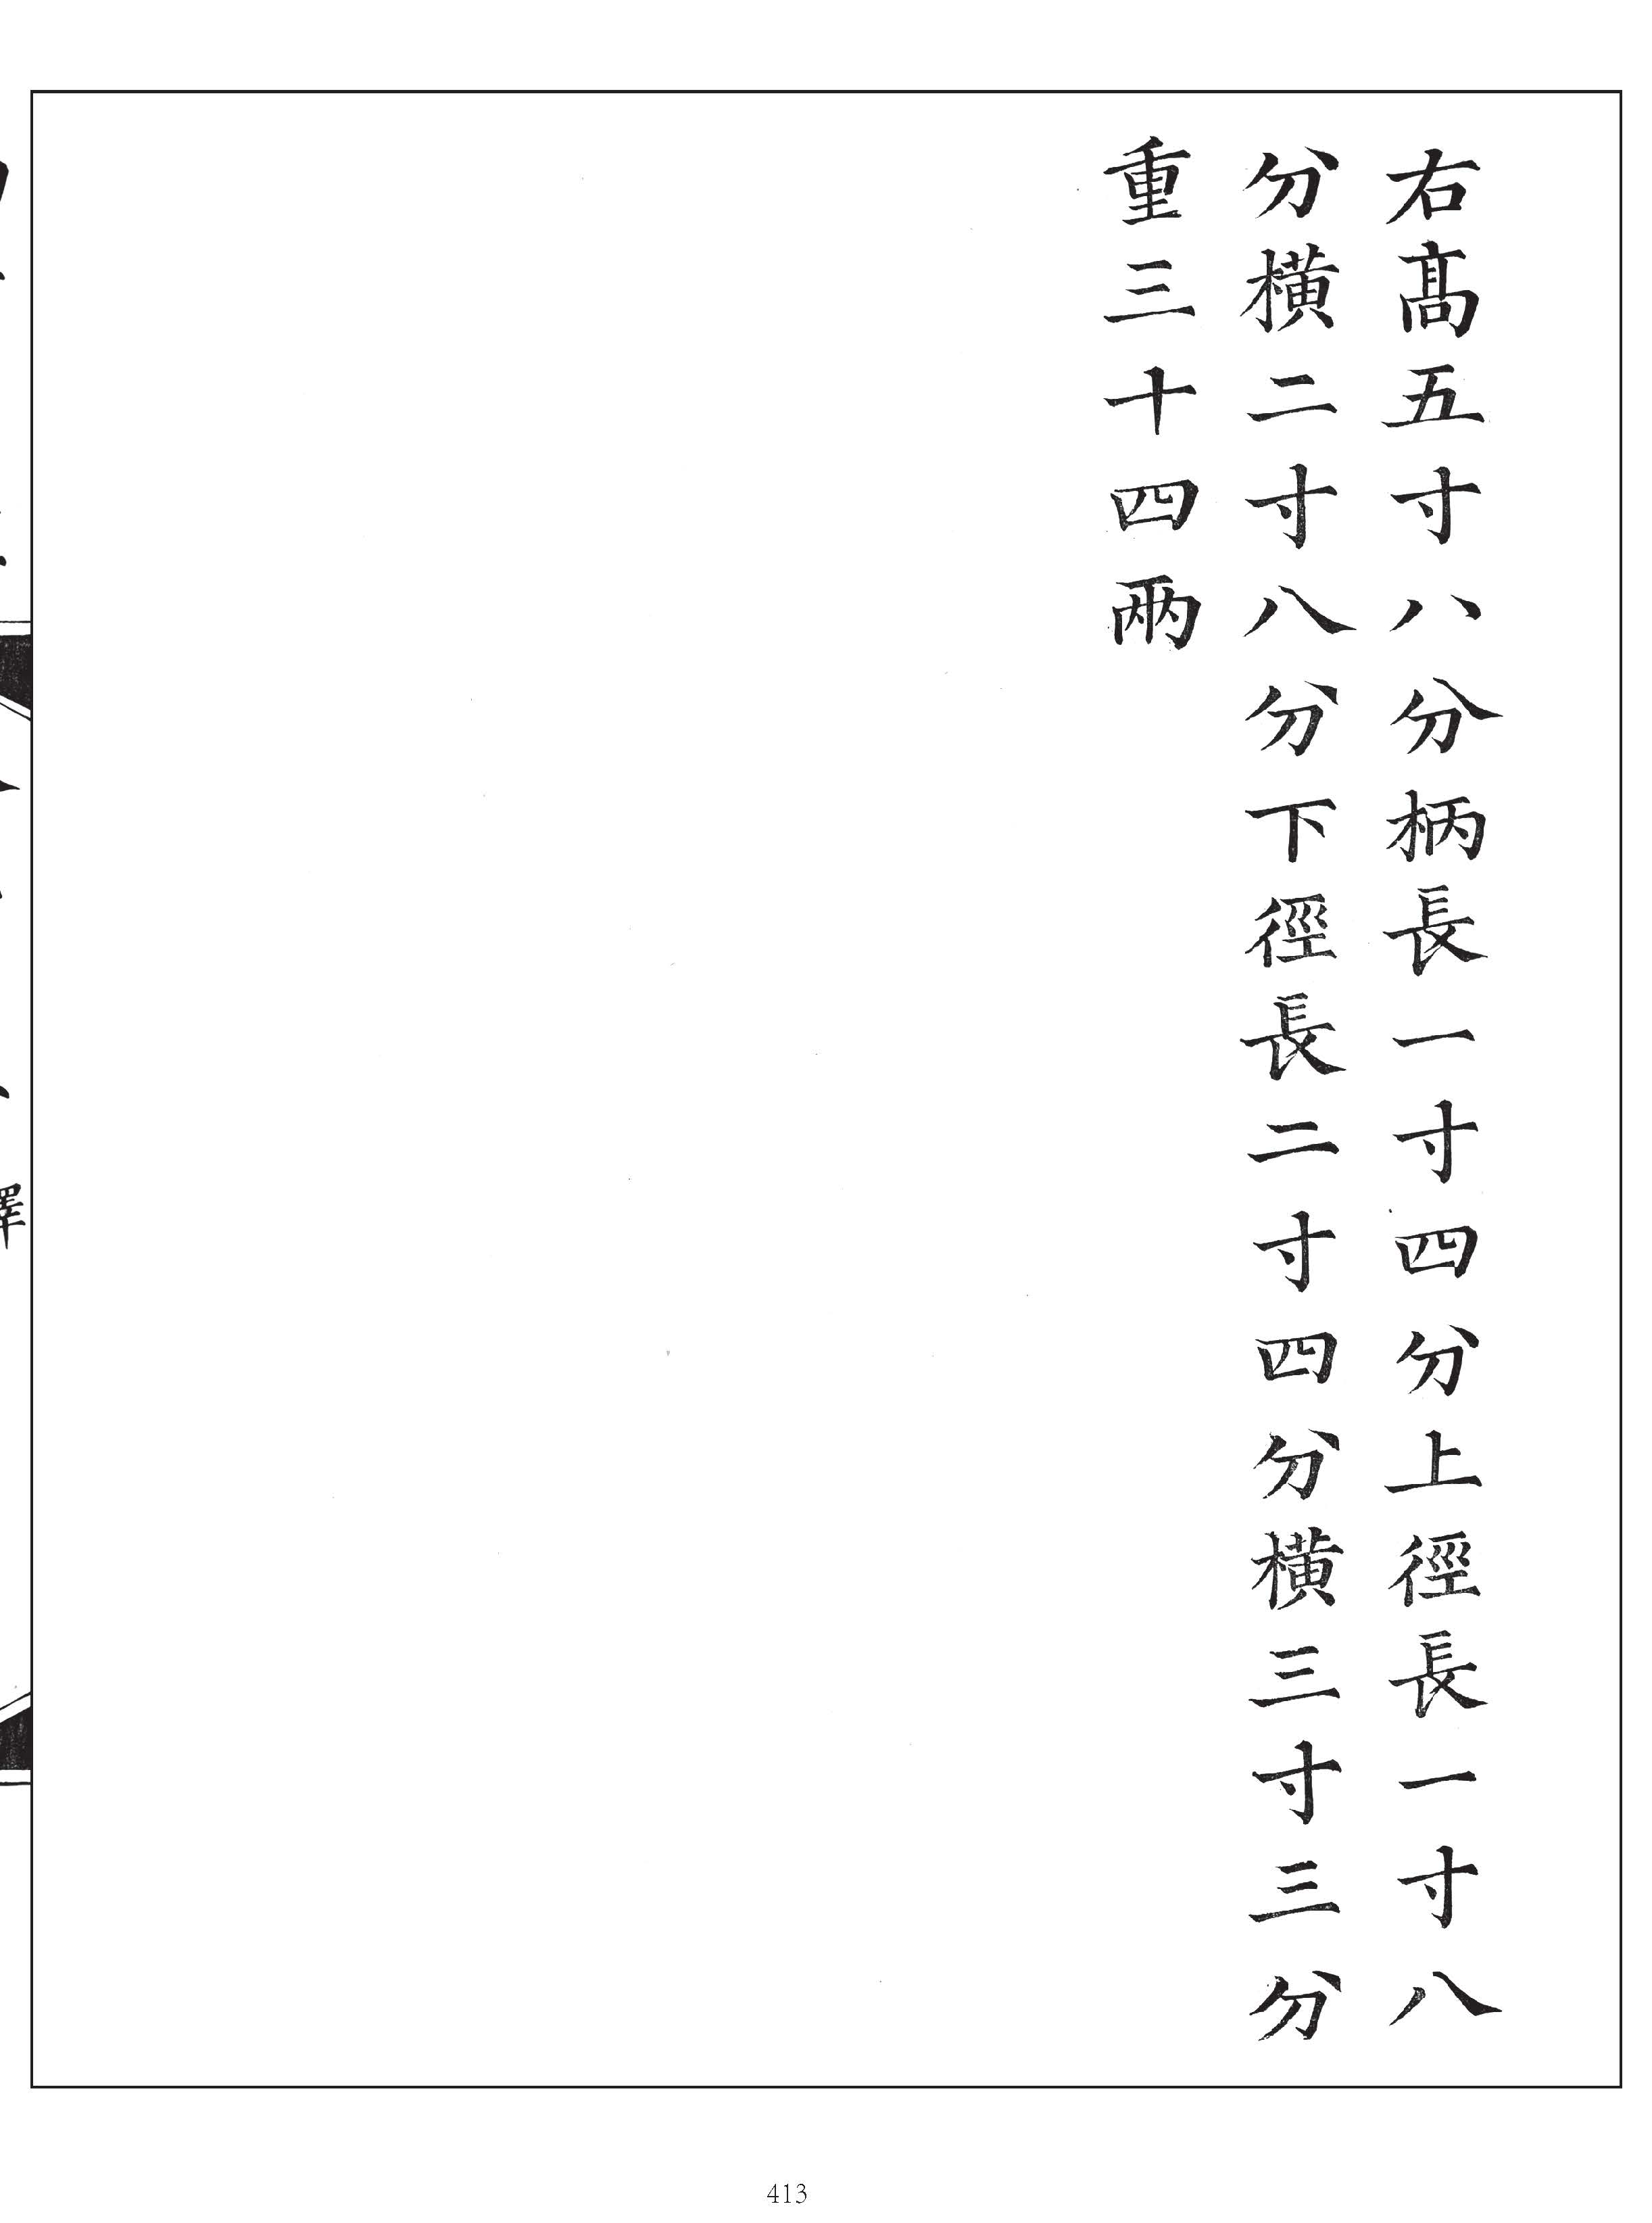 右髙五寸八分柄長一寸四分上徑長一寸八
分橫二寸八分下徑長二寸四分橫三寸三分
重三十四兩
413